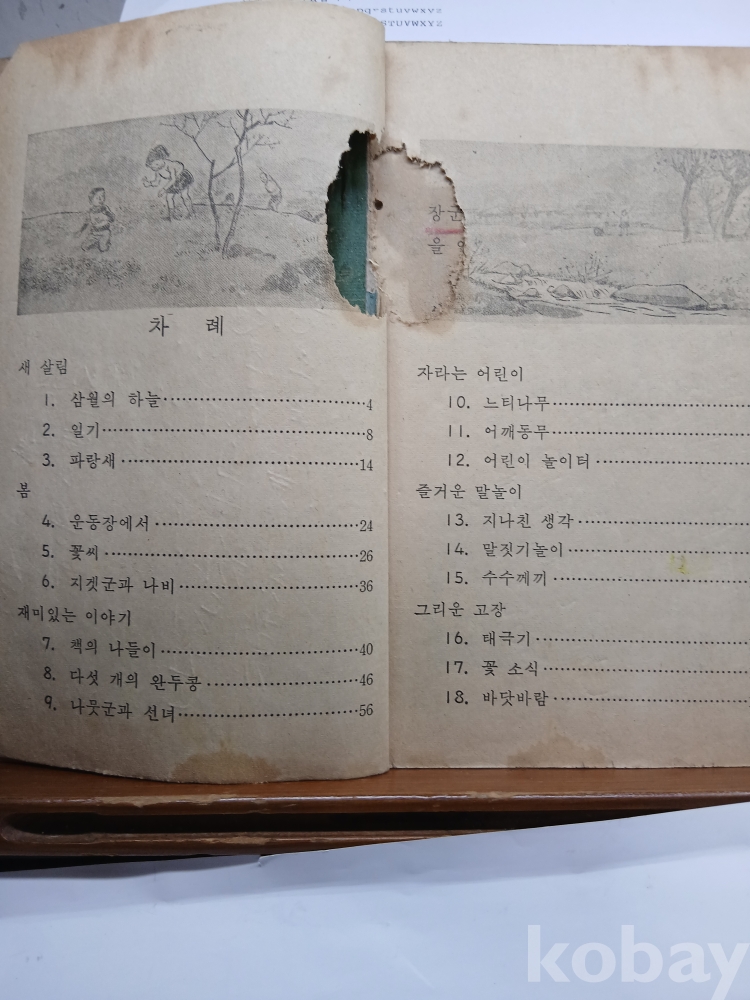 STUVWXYZ
장군
을
차 례
새 살림
1. 삼월의 하늘 4
2. 일기 8
3. 파랑새 14
봄
4. 운동장에서 24
5. 꽃씨 26
6. 지겟군과 나비 36
재미있는 이야기
7. 책의 나들이 40
8. 다섯 개의 완두콩 46
9. 나뭇군과 선녀 56
자라는 어린이
10. 느티나무
11. 어깨동무
12. 어린이 놀이터
즐거운 말놀이
13. 지나친 생각
14. 말짓기놀이
15. 수수께끼
그리운 고장
16. 태극기
17. 꽃 소식
18. 바닷바람
kobay